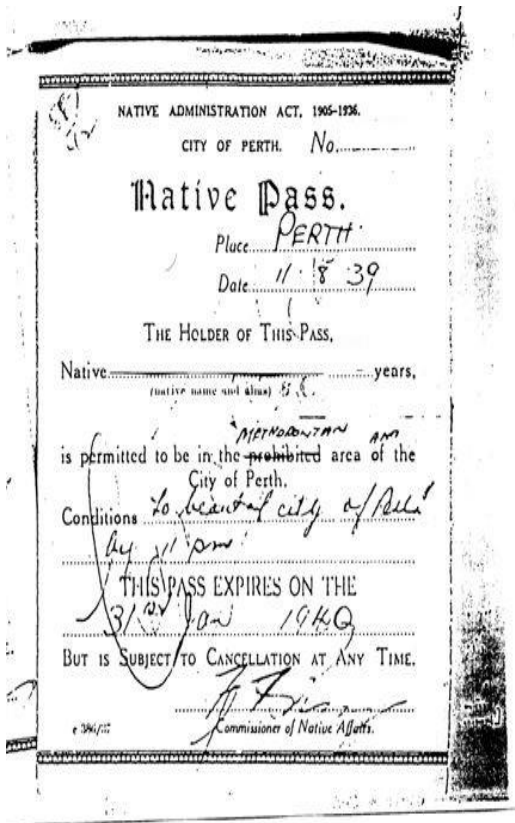 NATIVE ADMINISTRATION ACT, 1905-1936.
CITY OF PERTH. No.
Native Pass.
Place PERTH
Date 11 8 39
THE HOLDER OF THIS PASS,
Native years,
(native name and alias)
METROPOLITAN AND
is permitted to be in the prohibited area of the
City of Perth.
Conditions To be out of city of Perth
by 11 pm
THIS PASS EXPIRES ON THE
31 Jan 1940
BUT IS SUBJECT TO CANCELLATION AT ANY TIME.
Commissioner of Native Affairs.